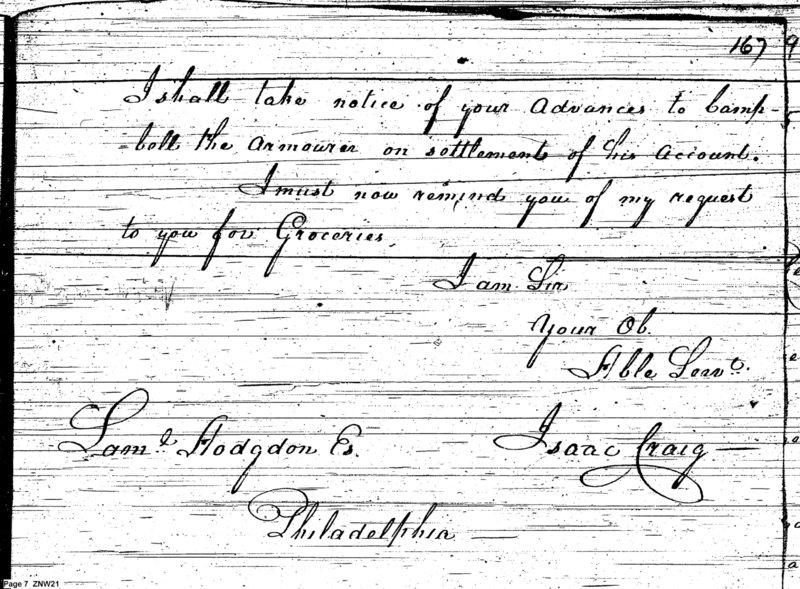 167
I shall take notice of your Advances to Camp-
bell the Armourer on settlement of his Account.
I must now remind you of my request
to you for Groceries
I am Sir
Your Ob.
Hble Servt.
Saml Hodgdon Es.
Isaac Craig
Philadelphia
Page 7 ZNW21